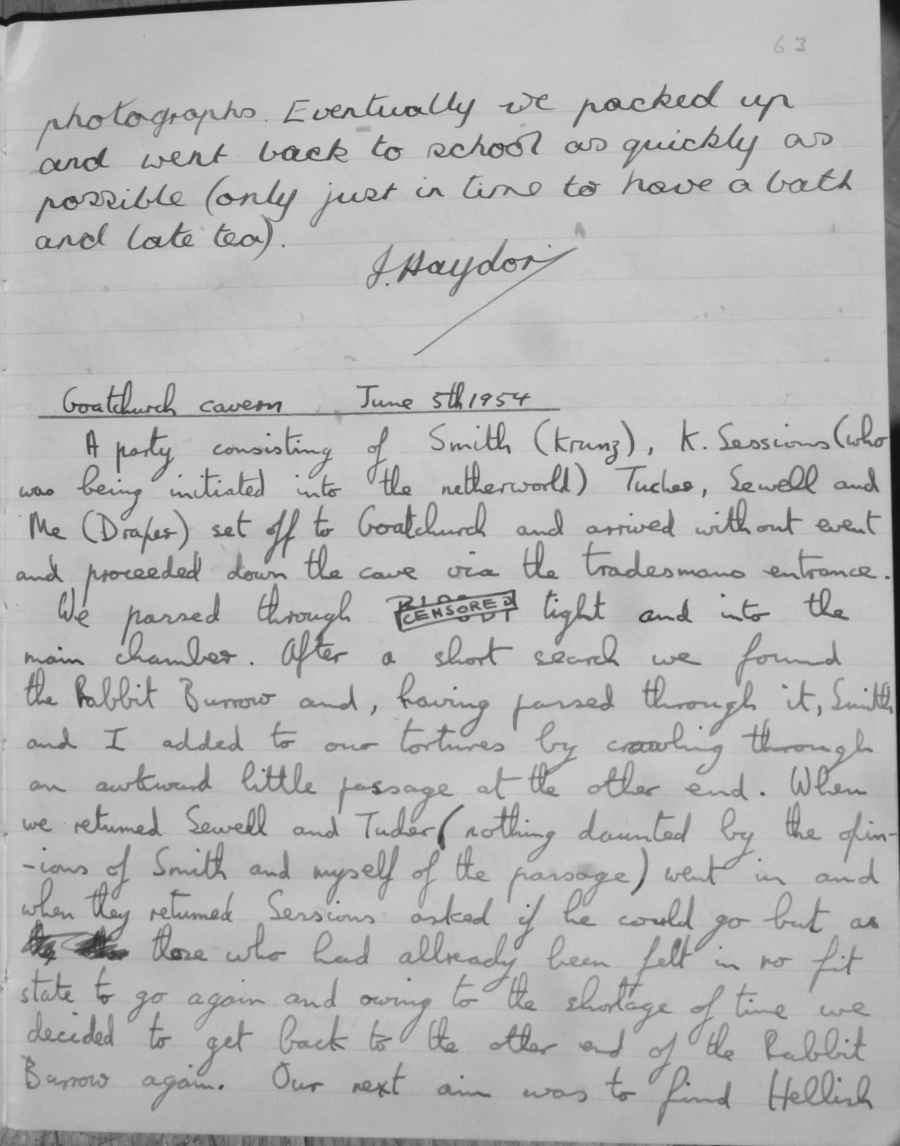 63
photographs. Eventually we packed up
and went back to school as quickly as
possible (only just in time to have a bath
and late tea).
J. Haydon
Goatchurch cavern June 5th 1954
A party consisting of Smith (Krunz), K. Sessions (who
was being initiated into the netherworld) Tucker, Sewell and
Me (Draper) set off to Goatchurch and arrived without event
and proceeded down the cave via the tradesmans entrance.
We passed through CENSORED tight and into the
main chamber. After a short search we found
the Rabbit Burrow and, having passed through it, Smith
and I added to our tortures by crawling through
an awkward little passage at the other end. When
we returned Sewell and Tucker (nothing daunted by the opin-
-ions of Smith and myself of the passage) went in and
when they returned Sessions asked if he could go but as
those who had allready been felt in no fit
state to go again and owing to the shortage of time we
decided to get back to the other end of the Rabbit
Burrow again. Our next aim was to find Hellish